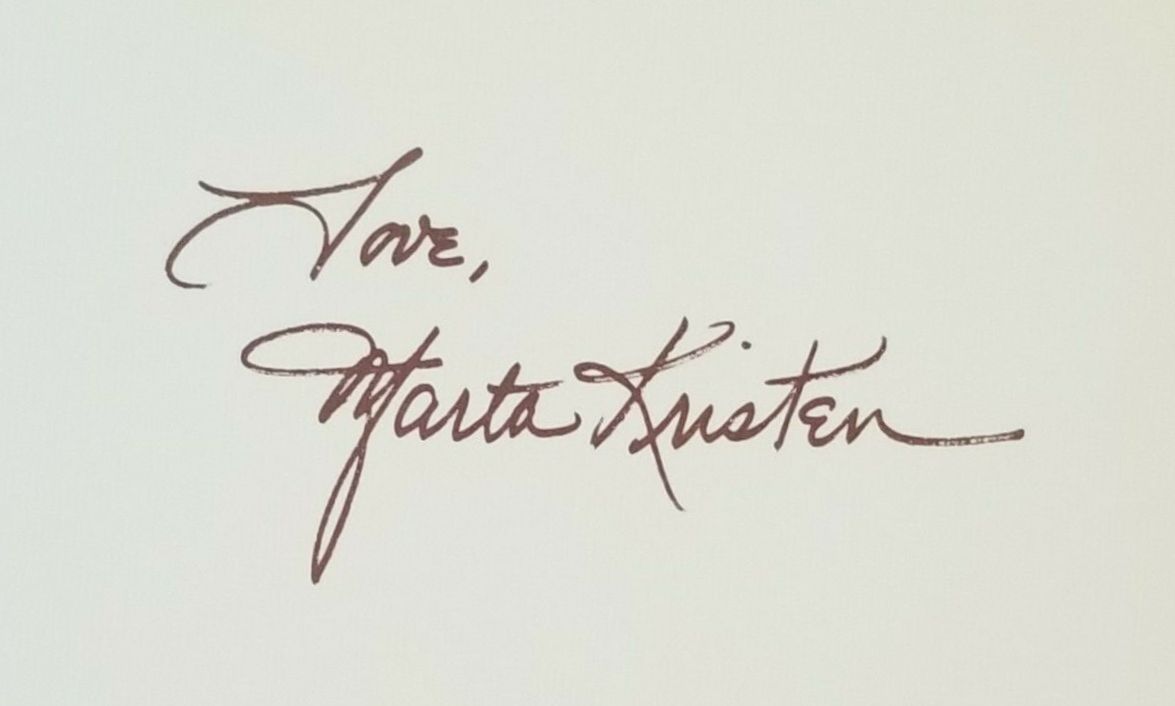 Love,
Marta Kristen